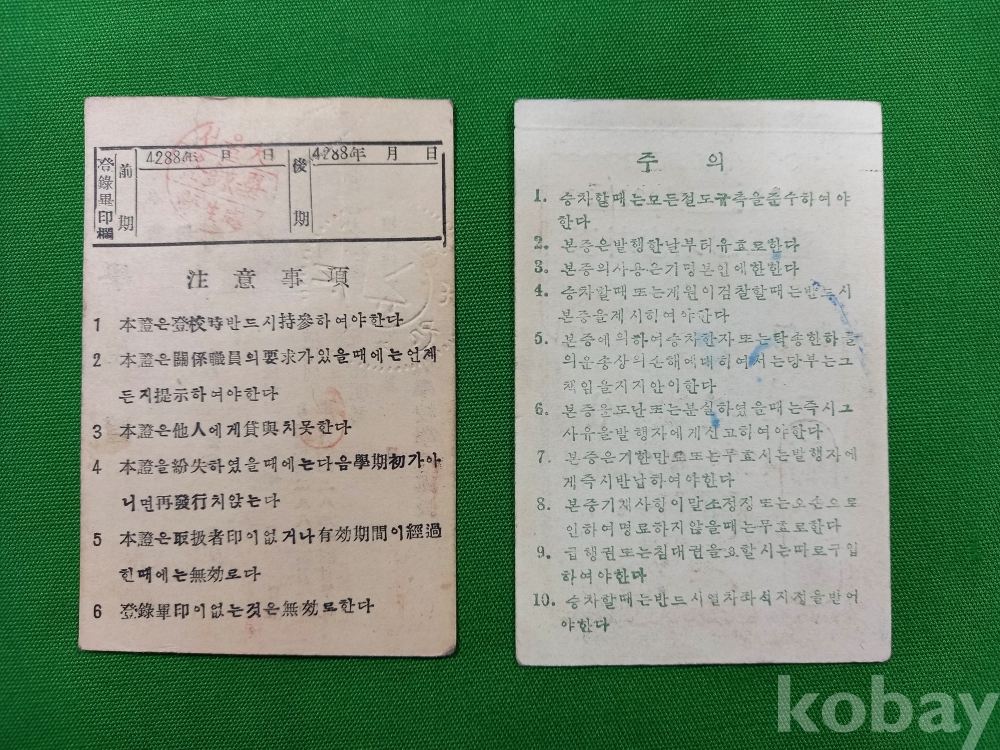 登錄畢印欄
前期
4288年 月 日
後期
4288年 月 日
注意事項
1 本證은登校時반드시持參하여야한다
2 本證은關係職員의要求가있을때에는언제
든지提示하여야한다
3 本證은他人에게貸與치못한다
4 本證을紛失하였을때에는다음學期初가아
니면再發行치않는다
5 本證은取扱者印이없거나有効期間이經過
한때에는無効로다
6 登錄畢印이없는것은無効로한다
주 의
1. 승차할때는모든철도규측을준수하여야
한다
2. 본증은발행한날부터유효로한다
3. 본증의사용은기명본인에한한다
4. 승차할때 또는게원이검찰할때는반드시
본증을게시하여야한다
5. 본증에의하여승차한자 또는탁송한하물
의운송상의손해에대하여서는당부는그
책임을지지안이한다
6. 본증을도난또는분실하였을때는즉시그
사유을발행자에게신고하여야한다
7. 본증은기한만료또는무효시는발행자에
게즉시반납하여야한다
8. 본증기재사항이말소정정 또는오손으로
인하여명료하지않을때는무효로한다
9. 급행권또는침대권을요할시는따로구입
하여야한다
10. 승차할때는반드시열차좌석지정을받어
야한다
kobay